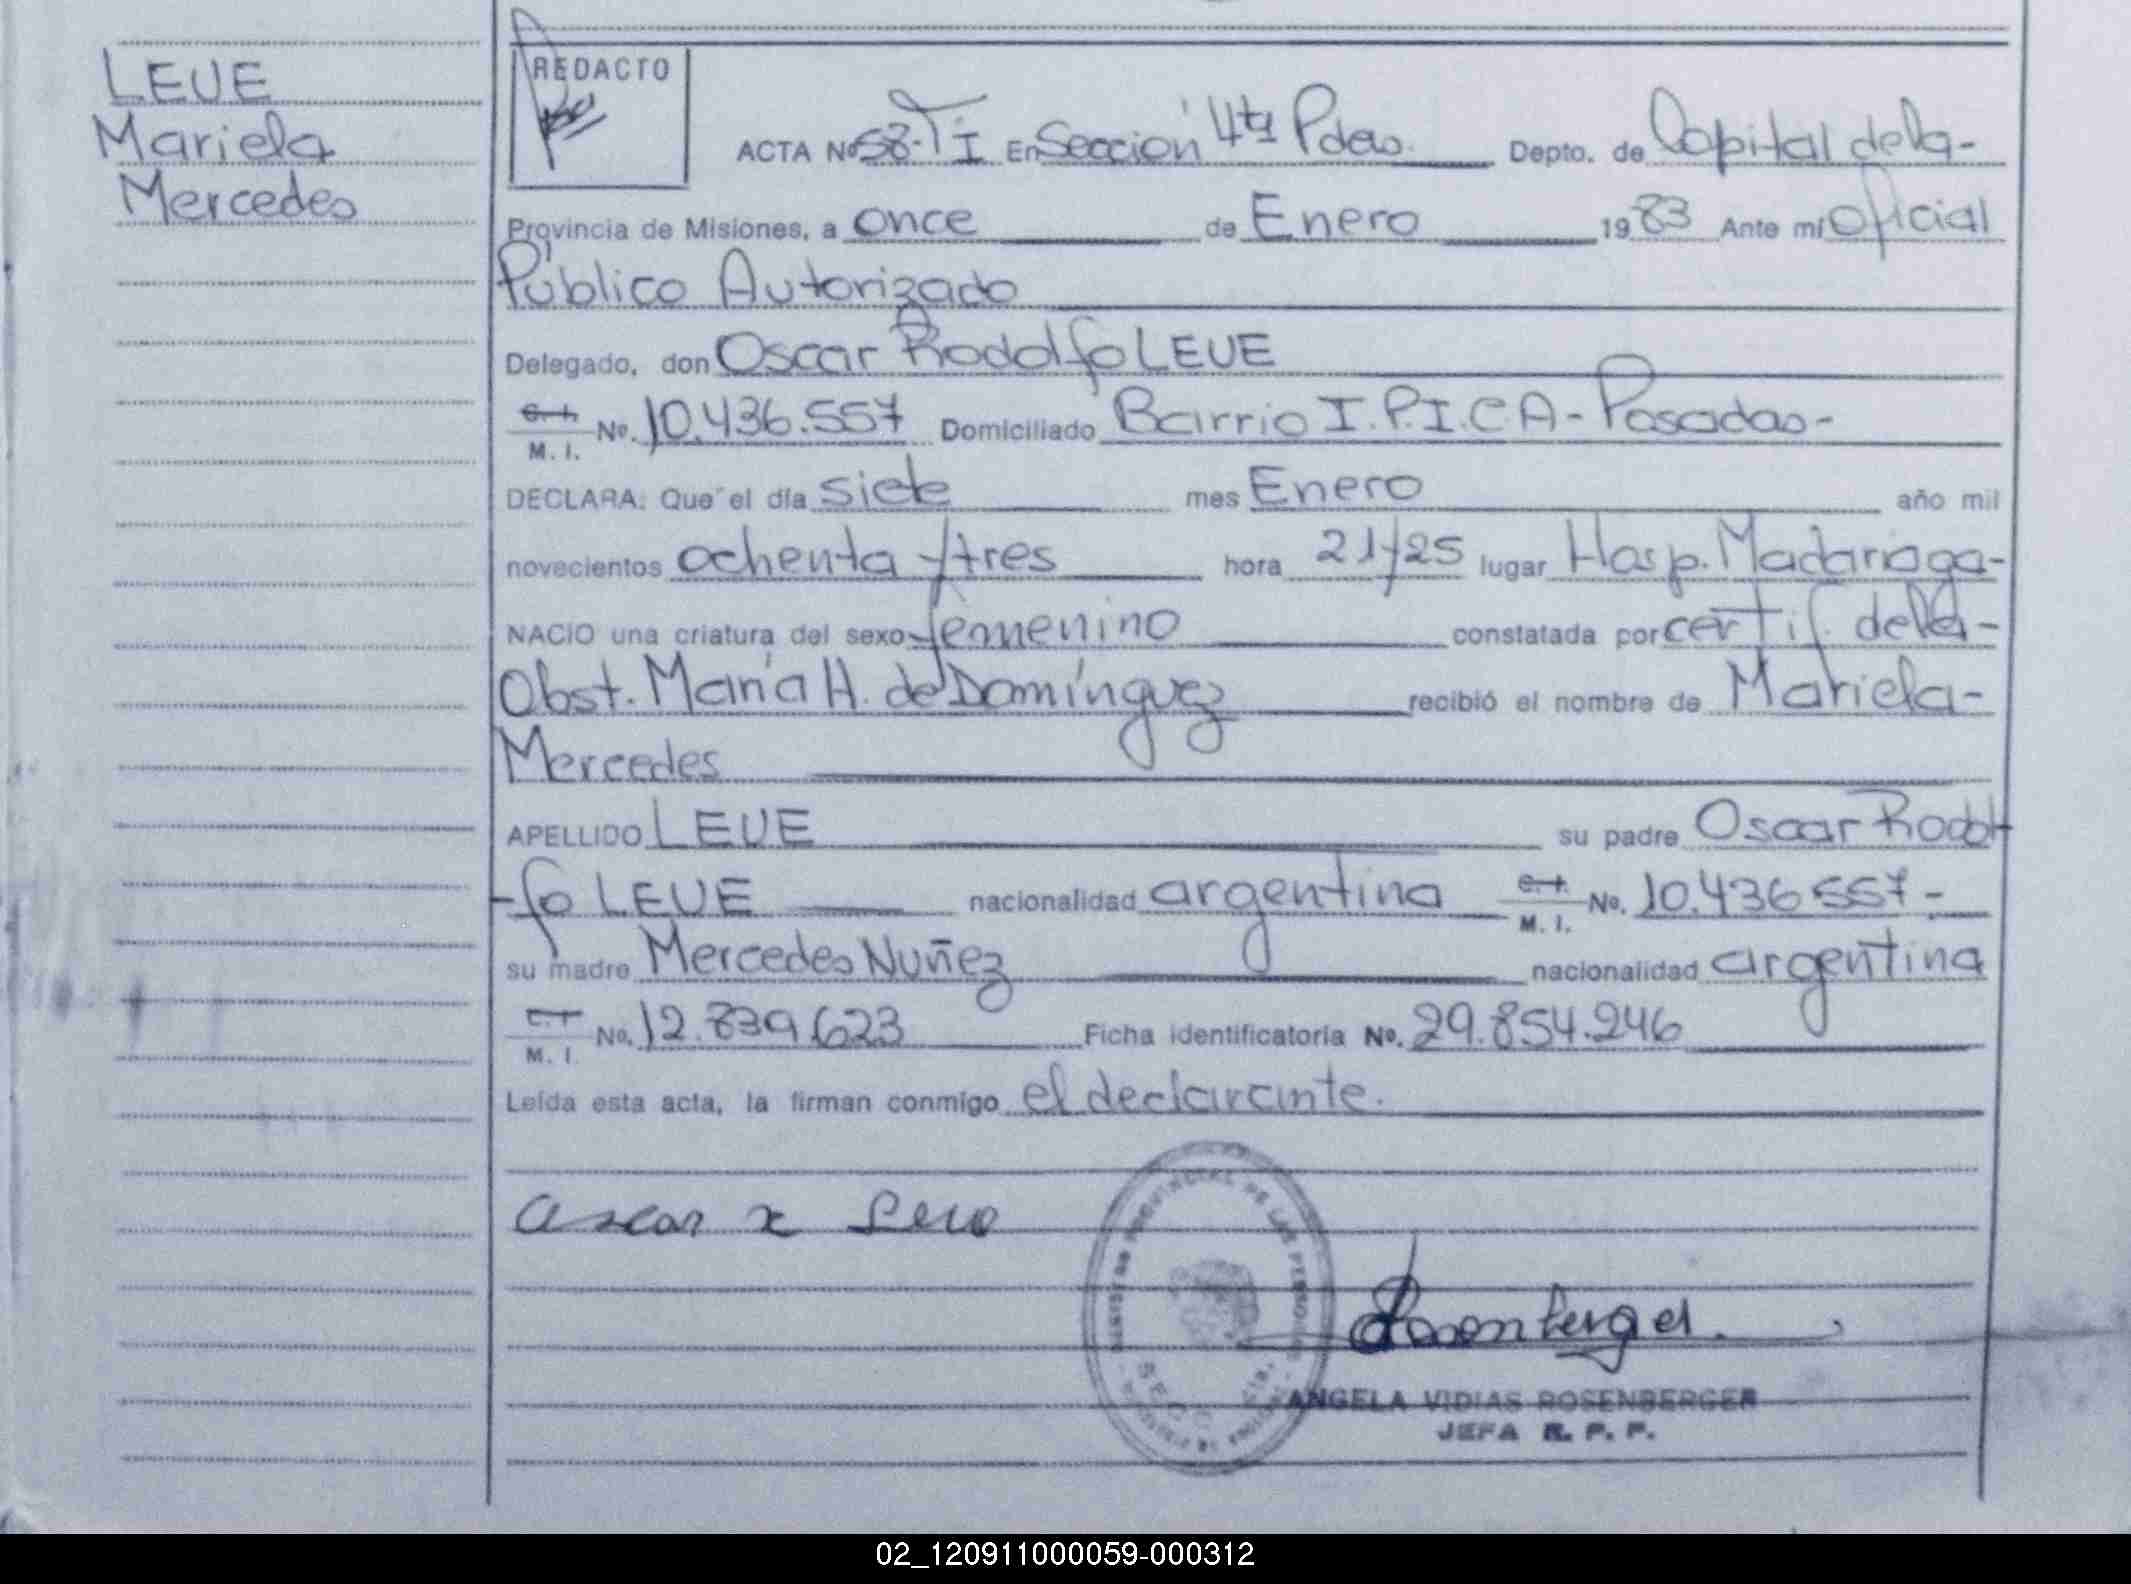 LEUE
Mariela
Mercedes
REDACTO
ACTA Nº 58-TI En Sección 4ta Pdas. Depto. de Capital de la-
Provincia de Misiones, a once de Enero 1983 Ante mí Oficial
Público Autorizado
Delegado, don Oscar Rodolfo LEUE
C.I. M. I. No. 10.436.557 Domiciliado Barrio I.P.I.C.A - Posadas-
DECLARA: Que el día siete mes Enero año mil
novecientos ochenta y tres hora 21/25 lugar Hosp. Madariaga-
NACIO una criatura del sexo femenino constatada por certif. de la-
Obst. María H. de Domínguez recibió el nombre de Mariela-
Mercedes
APELLIDO LEUE su padre Oscar Rodol-
-fo LEUE nacionalidad argentina C.I. M. I. No. 10.436.557-
su madre Mercedes Nuñez nacionalidad argentina
C.I. M. I. No. 12.839.623 Ficha identificatoria No. 29.854.246
Leída esta acta, la firman conmigo el declarante.
PROVINCIAL DE LAS PERSONAS
Rosenberger
ANGELA VIDIAS ROSENBERGER
JEFA R. P. P.
02_120911000059-000312